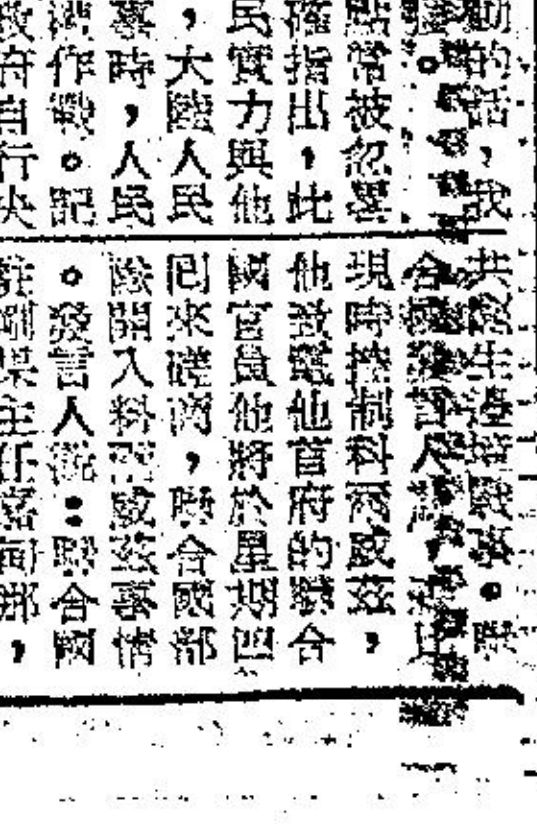 動的話,我
點常被忽畧
確指出,此
民實力與他
,大陸人民
事時,人民
作戰。記
府自行决
共發生邊境戰事。聯
合國發言人
現時控制科爾威茲,
他致電他首府的聯合
國官員他將於星期四
回來磋商,聯合國部
隊開入科爾威茲事情
。發言人說:聯合國
駐剛果主任嘉甸那,